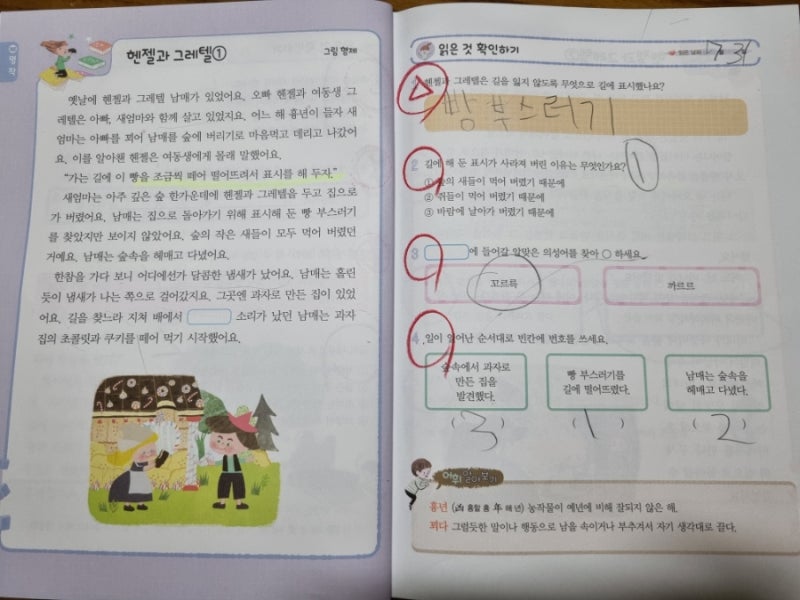 명작
헨젤과 그레텔①
그림 형제
옛날에 헨젤과 그레텔 남매가 있었어요. 오빠 헨젤과 여동생 그
레텔은 아빠, 새엄마와 함께 살고 있었지요. 어느 해 흉년이 들자 새
엄마는 아빠를 꾀어 남매를 숲에 버리기로 마음먹고 데리고 나갔어
요. 이를 알아챈 헨젤은 여동생에게 몰래 말했어요.
“가는 길에 이 빵을 조금씩 떼어 떨어뜨려서 표시를 해 두자.”
새엄마는 아주 깊은 숲 한가운데에 헨젤과 그레텔을 두고 집으로
가 버렸어요. 남매는 집으로 돌아가기 위해 표시해 둔 빵 부스러기
를 찾았지만 보이지 않았어요. 숲의 작은 새들이 모두 먹어 버렸던
거예요. 남매는 숲속을 헤매고 다녔어요.
한참을 가다 보니 어디에선가 달콤한 냄새가 났어요. 남매는 홀린
듯이 냄새가 나는 쪽으로 걸어갔지요. 그곳엔 과자로 만든 집이 있었
어요. 길을 찾느라 지쳐 배에서 소리가 났던 남매는 과자
집의 초콜릿과 쿠키를 떼어 먹기 시작했어요.
읽은 것 확인하기
읽은 날짜 7 31
헨젤과 그레텔은 길을 잃지 않도록 무엇으로 길에 표시했나요?
빵 부스러기
2 길에 해 둔 표시가 사라져 버린 이유는 무엇인가요? 1
① 숲의 새들이 먹어 버렸기 때문에
② 쥐들이 먹어 버렸기 때문에
③ 바람에 날아가 버렸기 때문에
3 에 들어갈 알맞은 의성어를 찾아 ○ 하세요.
꼬르륵 까르르
4 일이 일어난 순서대로 빈칸에 번호를 쓰세요.
숲속에서 과자로 빵 부스러기를 남매는 숲속을
만든 집을 길에 떨어뜨렸다. 헤매고 다녔다.
발견했다.
(3) (1) (2)
어휘 알아보기
흉년 (凶 흉할 흉 年 해 년) 농작물이 예년에 비해 잘되지 않은 해.
꾀다 그럴듯한 말이나 행동으로 남을 속이거나 부추겨서 자기 생각대로 끌다.